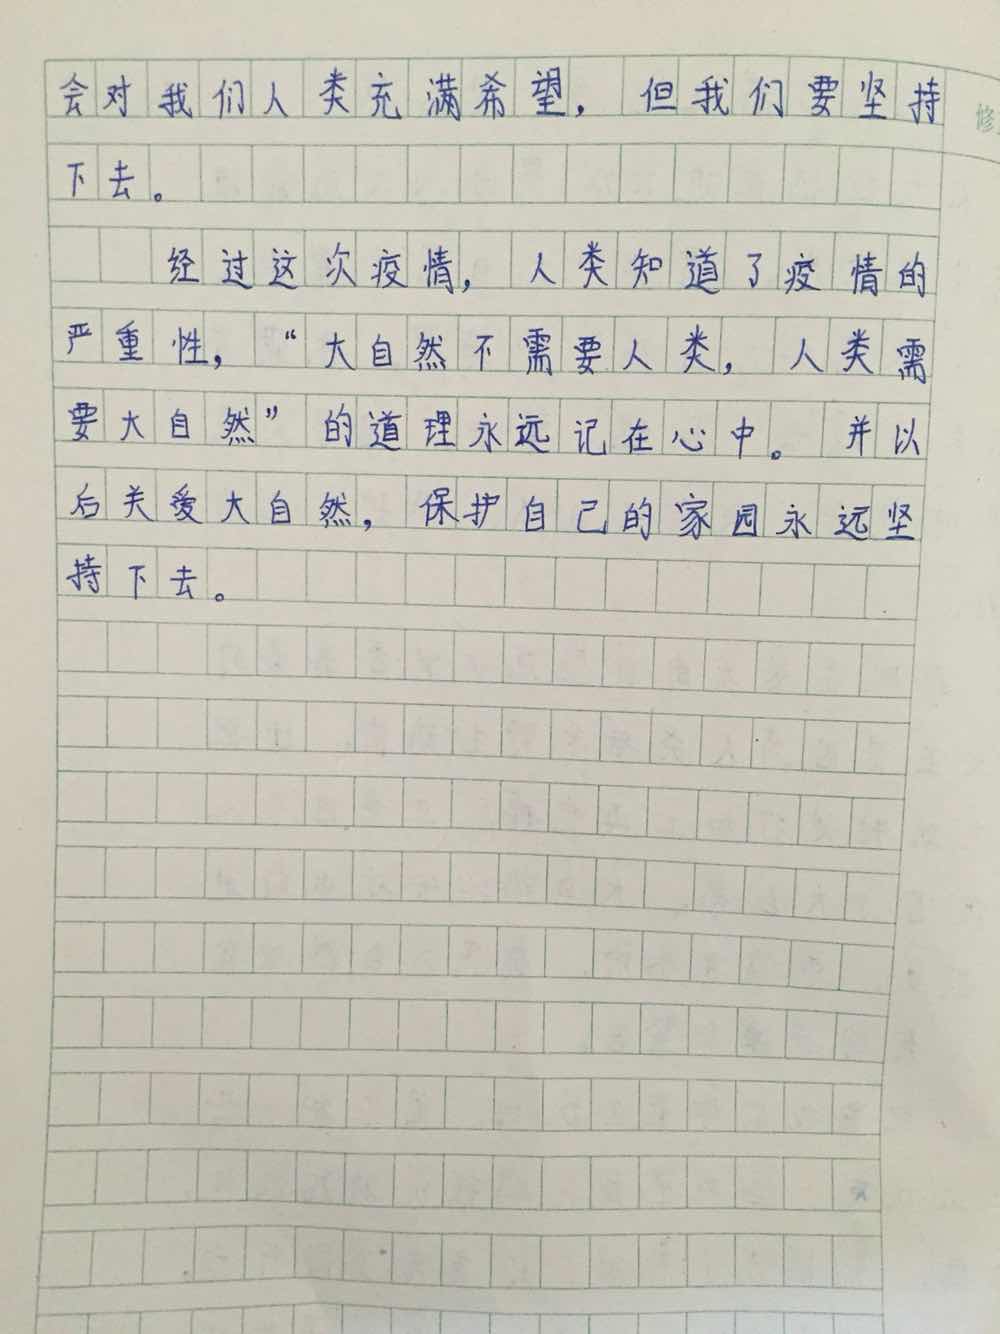 会对我们人类充满希望，但我们要坚持
下去。
经过这次疫情，人类知道了疫情的
严重性，“大自然不需要人类，人类需
要大自然”的道理永远记在心中。并以
后关爱大自然，保护自己的家园永远坚
持下去。
修